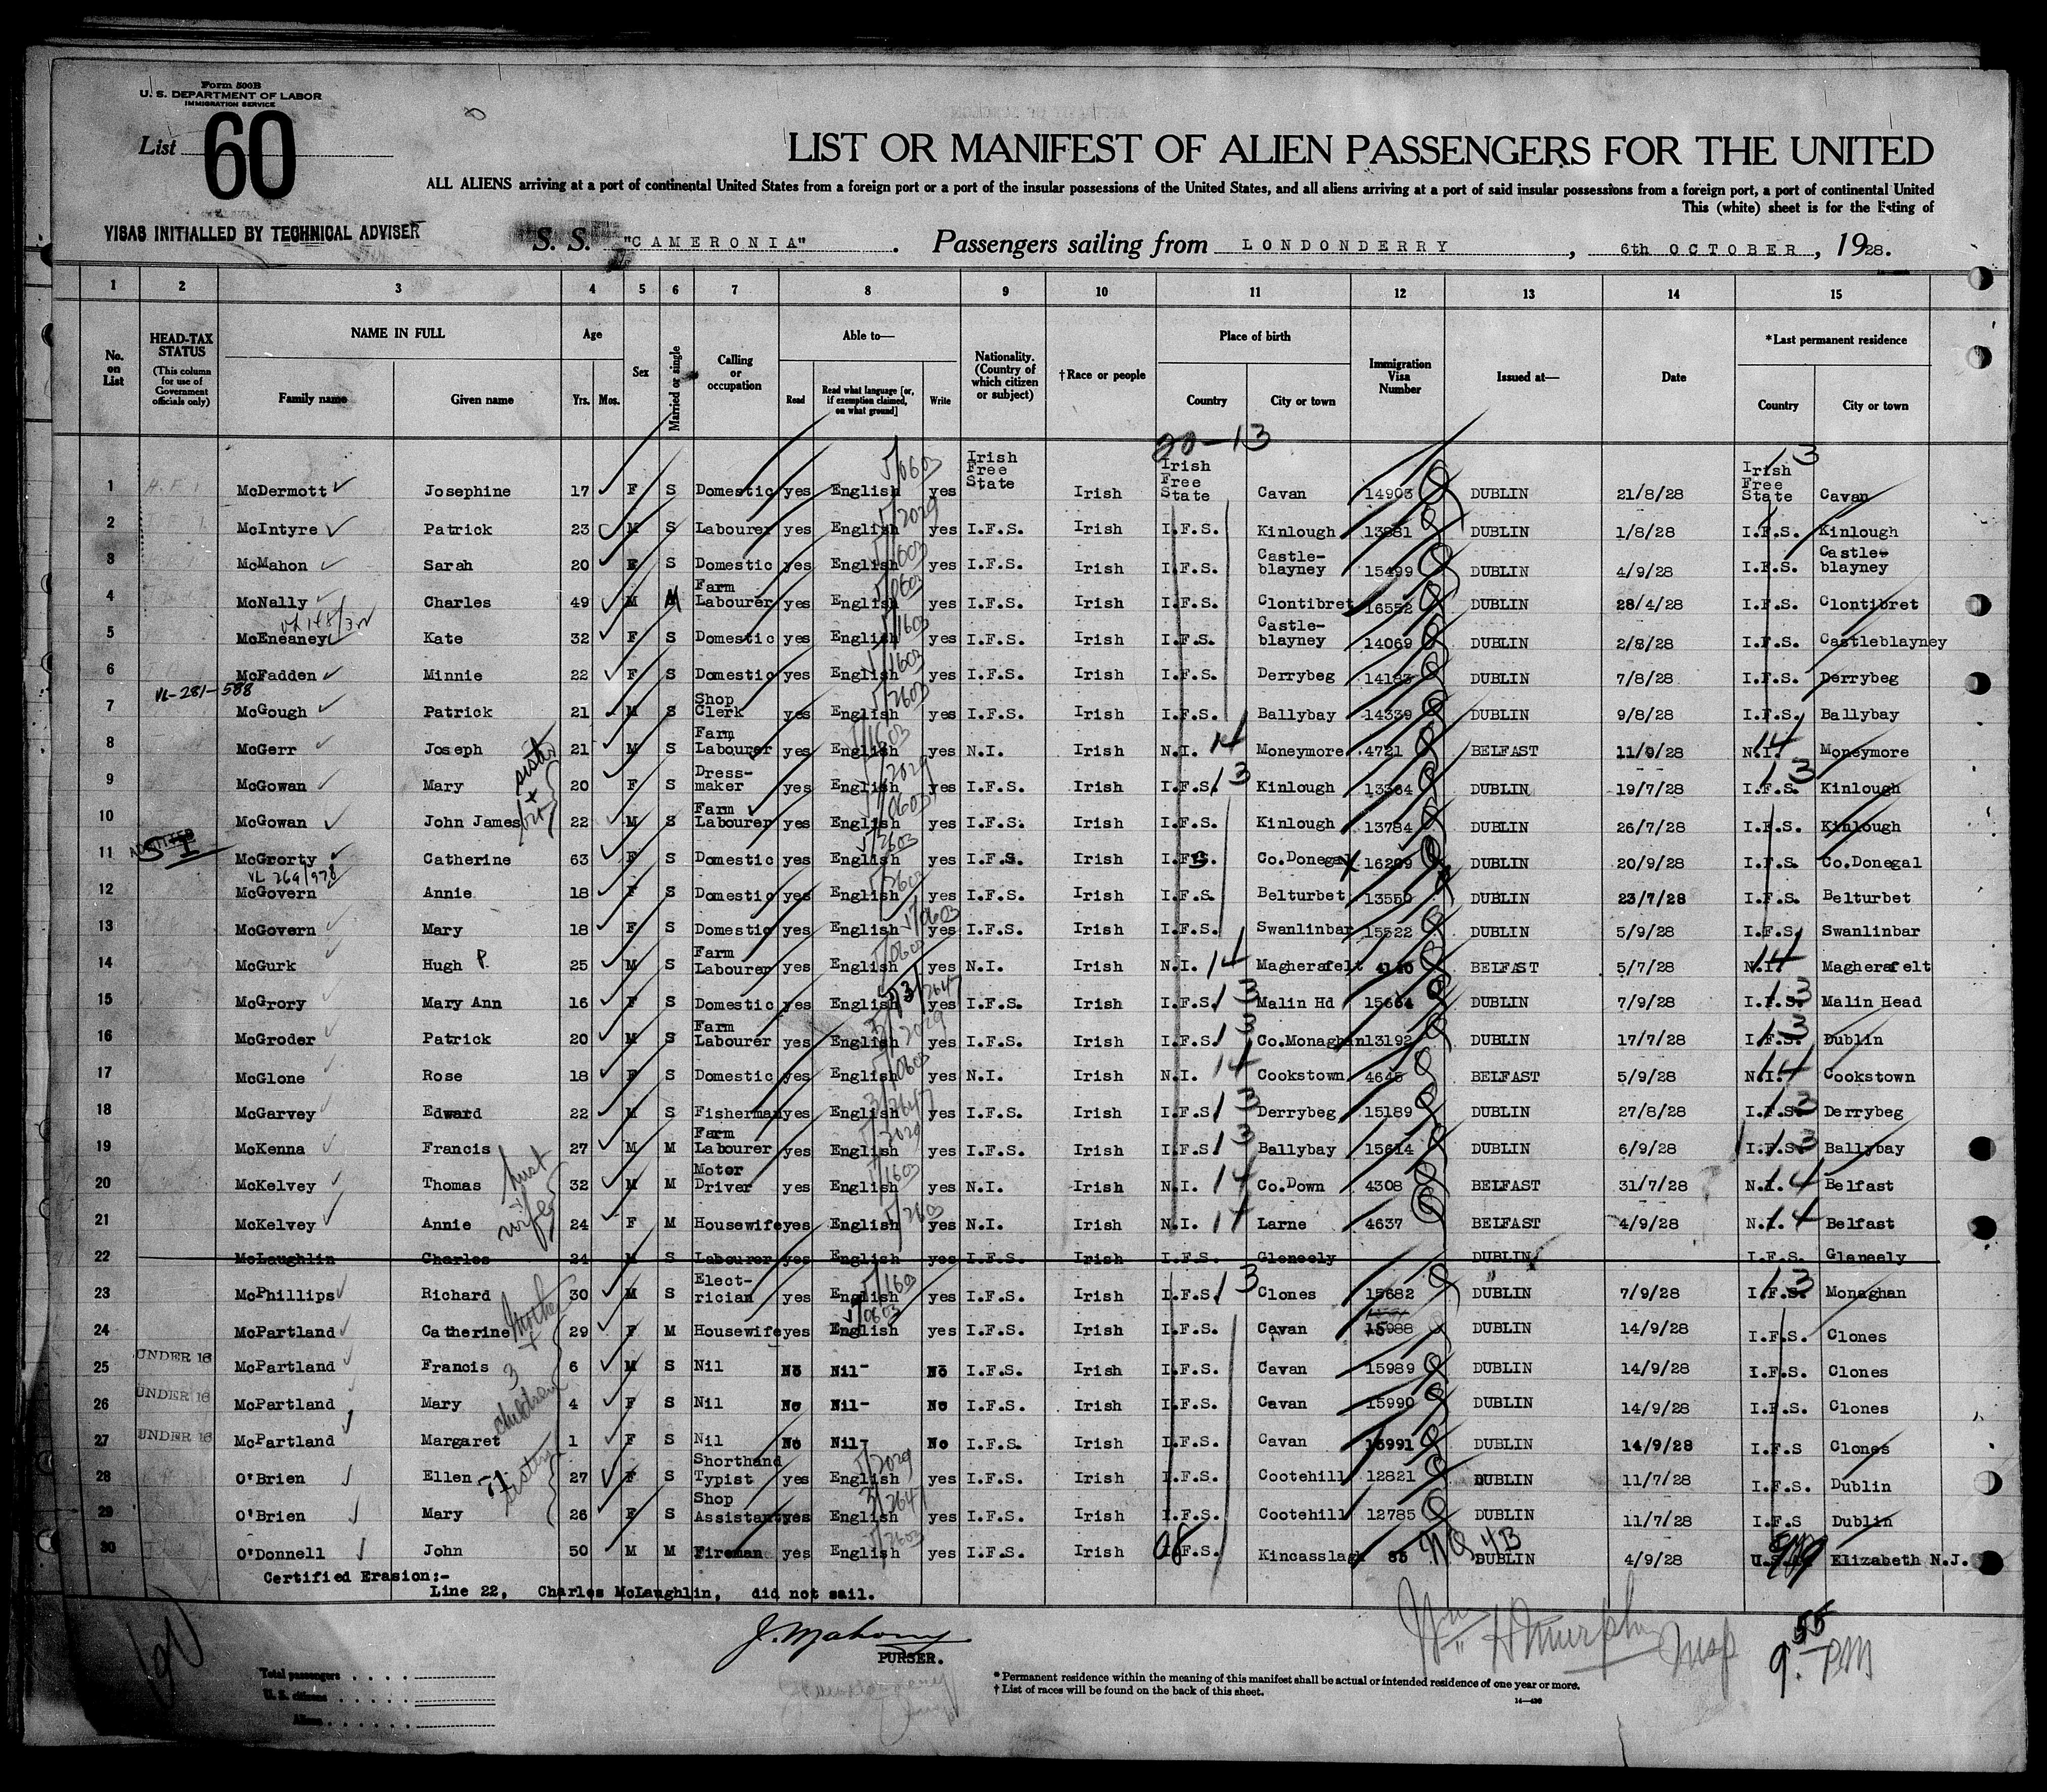 Form 500B
U. S. DEPARTMENT OF LABOR
IMMIGRATION SERVICE
List 60
LIST OR MANIFEST OF ALIEN PASSENGERS FOR THE UNITED
ALL ALIENS arriving at a port of continental United States from a foreign port or a port of the insular possessions of the United States, and all aliens arriving at a port of said insular possessions from a foreign port, a port of continental United
This (white) sheet is for the listing of
VISAS INITIALLED BY TECHNICAL ADVISER
S. S. "CAMERONIA" . Passengers sailing from LONDONDERRY , 6th OCTOBER , 1928.
1 2 3 4 5 6 7 8 9 10 11 12 13 14 15
No. on List
HEAD-TAX STATUS (This column for use of Government officials only)
NAME IN FULL Family name Given name
Age Yrs. Mos.
Sex
Married or single
Calling or occupation
Able to— Read Read what language [or, if exemption claimed, on what ground] Write
Nationality. (Country of which citizen or subject)
†Race or people
Place of birth Country City or town
Immigration Visa Number
Issued at—
Date
*Last permanent residence Country City or town
20-13
1 McDermott Josephine 17 F S Domestic yes English yes Irish Free State Irish Irish Free State Cavan 14903 DUBLIN 21/8/28 Irish Free State Cavan
2 McIntyre Patrick 23 M S Labourer yes English yes I.F.S. Irish I.F.S. Kinlough 13881 DUBLIN 1/8/28 I.F.S. Kinlough
3 McMahon Sarah 20 F S Domestic yes English yes I.F.S. Irish I.F.S. Castle-blayney 15499 DUBLIN 4/9/28 I.F.S. Castle-blayney
4 McNally Charles 49 M M Farm Labourer yes English yes I.F.S. Irish I.F.S. Clontibret 16552 DUBLIN 28/4/28 I.F.S. Clontibret
5 McEneaney Kate 32 F S Domestic yes English yes I.F.S. Irish I.F.S. Castle-blayney 14069 DUBLIN 2/8/28 I.F.S. Castleblayney
6 McFadden Minnie 22 F S Domestic yes English yes I.F.S. Irish I.F.S. Derrybeg 14183 DUBLIN 7/8/28 I.F.S. Derrybeg
VL-281-588
7 McGough Patrick 21 M S Shop Clerk yes English yes I.F.S. Irish I.F.S. Ballybay 14339 DUBLIN 9/8/28 I.F.S. Ballybay
8 McGerr Joseph 21 M S Farm Labourer yes English yes N.I. Irish N.I. 14 Moneymore 4721 BELFAST 11/9/28 N.I. 14 Moneymore
9 McGowan Mary 20 F S Dress-maker yes English yes I.F.S. Irish I.F.S. 13 Kinlough 13364 DUBLIN 19/7/28 I.F.S. 13 Kinlough
sister
10 McGowan John James 22 M S Farm Labourer yes English yes I.F.S. Irish I.F.S. Kinlough 13784 DUBLIN 26/7/28 I.F.S. Kinlough
ADMITTED
SI
11 McGrorty Catherine 63 F S Domestic yes English yes I.F.S. Irish I.F.S. Co.Donegal 16209 DUBLIN 20/9/28 I.F.S. Co.Donegal
VL 269/978
12 McGovern Annie 18 F S Domestic yes English yes I.F.S. Irish I.F.S. Belturbet 13550 DUBLIN 23/7/28 I.F.S. Belturbet
13 McGovern Mary 18 F S Domestic yes English yes I.F.S. Irish I.F.S. Swanlinbar 15522 DUBLIN 5/9/28 I.F.S. Swanlinbar
14 McGurk Hugh P. 25 M S Farm Labourer yes English yes N.I. Irish N.I. 14 Magherafelt BELFAST 5/7/28 N.I. 14 Magherafelt
15 McGrory Mary Ann 16 F S Domestic yes English yes I.F.S. Irish I.F.S. 13 Malin Hd 15664 DUBLIN 7/9/28 I.F.S. 13 Malin Head
16 McGroder Patrick 20 M S Farm Labourer yes English yes I.F.S. Irish I.F.S. 13 Co.Monaghan 13192 DUBLIN 17/7/28 I.F.S. 13 Dublin
17 McGlone Rose 18 F S Domestic yes English yes N.I. Irish N.I. 14 Cookstown 4645 BELFAST 5/9/28 N.I. 14 Cookstown
18 McGarvey Edward 22 M S Fisherman yes English yes I.F.S. Irish I.F.S. 13 Derrybeg 15189 DUBLIN 27/8/28 I.F.S. 13 Derrybeg
19 McKenna Francis 27 M M Farm Labourer yes English yes I.F.S. Irish I.F.S. 13 Ballybay 15614 DUBLIN 6/9/28 I.F.S. 13 Ballybay
20 McKelvey Thomas 32 M M Motor Driver yes English yes N.I. Irish N.I. 14 Co.Down 4308 BELFAST 31/7/28 N.I. 14 Belfast
wife
21 McKelvey Annie 24 F M Housewife yes English yes N.I. Irish N.I. 14 Larne 4637 BELFAST 4/9/28 N.I. 14 Belfast
22 McLaughlin Charles 24 M S Labourer yes English yes I.F.S. Irish I.F.S. Gleneely DUBLIN I.F.S. Gleneely
23 McPhillips Richard 30 M S Elect-rician yes English yes I.F.S. Irish I.F.S. 13 Clones 15682 DUBLIN 7/9/28 I.F.S. 13 Monaghan
mother + 3 children
24 McPartland Catherine 29 F M Housewife yes English yes I.F.S. Irish I.F.S. Cavan 15988 DUBLIN 14/9/28 I.F.S. Clones
25 UNDER 16 McPartland Francis 6 M S Nil No Nil- No I.F.S. Irish I.F.S. Cavan 15989 DUBLIN 14/9/28 I.F.S. Clones
26 UNDER 16 McPartland Mary 4 F S Nil No Nil- No I.F.S. Irish I.F.S. Cavan 15990 DUBLIN 14/9/28 I.F.S. Clones
27 UNDER 16 McPartland Margaret 1 F S Nil No Nil- No I.F.S. Irish I.F.S. Cavan 15991 DUBLIN 14/9/28 I.F.S Clones
28 O'Brien Ellen 71 27 F S Shorthand Typist yes English yes I.F.S. Irish I.F.S. Cootehill 12821 DUBLIN 11/7/28 I.F.S Dublin
sisters
29 O'Brien Mary 26 F S Shop Assistant yes English yes I.F.S. Irish I.F.S. Cootehill 12785 DUBLIN 11/7/28 I.F.S Dublin
30 O'Donnell John 50 M M Fireman yes English yes I.F.S. Irish I.F.S. Kincasslagh 85 NQ 4B DUBLIN 4/9/28 Elizabeth N.J.
Certified Erasion:-
Line 22, Charles McLaughlin, did not sail.
J. Mahony
PURSER.
Wm H Murphy Insp
9.55 PM
Total passengers
U. S. citizens
Aliens
* Permanent residence within the meaning of this manifest shall be actual or intended residence of one year or more.
† List of races will be found on the back of this sheet.